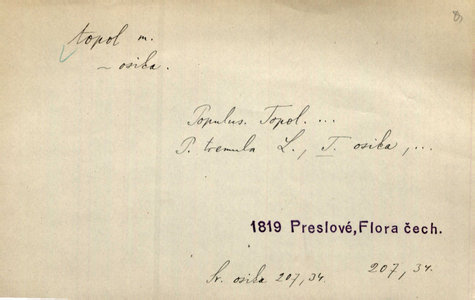 topol m.
~ osika.
Populus. Topol. ...
P. tremula L., T. osika, ...
1819 Preslové, Flora čech.
207, 34.
Sr. osika 207, 34.